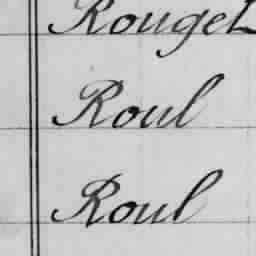 Rouget
Roul
Roul